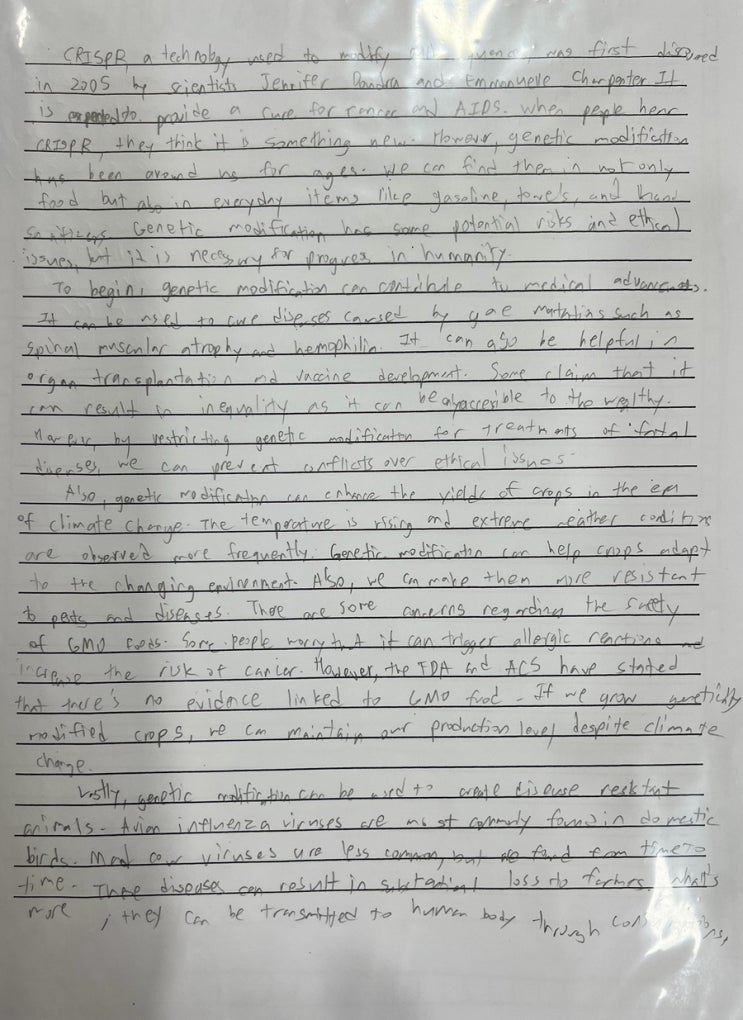 CRISPR, a technology used to modify was first discovered
in 2005 by scientists Jennifer Doudna and Emmanuelle Charpenter. It
is expected to provide a cure for cancer and AIDS. When people hear
CRISPR, they think it is something new. However, genetic modification
has been around us for ages. We can find them in not only
food but also in everyday items like gasoline, towels, and hand
sanitizers. Genetic modification has some potential risks and ethical
issues, but it is necessary for progress in humanity.
To begin, genetic modification can contribute to medical advancements.
It can be used to cure diseases caused by gene mutations such as
spinal muscular atrophy and hemophilia. It can also be helpful in
organ transplantation and vaccine development. Some claim that it
can result in inequality as it can be only accesible to the wealthy.
However, by restricting genetic modification for treatments of fatal
diseases, we can prevent conflicts over ethical issues.
Also, genetic modification can enhance the yields of crops in the era
of climate change. The temperature is rising and extreme weather conditions
are observed more frequently. Genetic modification can help crops adapt
to the changing environment. Also, we can make them more resistant
to pests and diseases. There are some concerns regarding the safety
of GMO foods. Some people worry that it can trigger allergic reactions and
increase the risk of cancer. However, the FDA and ACS have stated
that there's no evidence linked to GMO food. If we grow genetically
modified crops, we can maintain our production level despite climate
change.
Lastly, genetic modification can be used to create disease resistant
animals. Avian influenza viruses are most commonly found in domestic
birds. Mad cow viruses are less common, but are found from time to
time. These diseases can result in substantial loss to farmers. What's
more, they can be transmitted to human body through